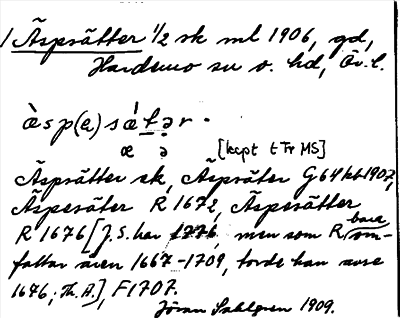 Äsprätter 1/2 sk ml 1906, gd,
Hardemo sn o. hd, Ör. l.
àsp(ə)sǽtər.
æ ə [kept t Fr MS]
Äsprätter sk, Äspräter G 64 kb 1907,
Äspesäter R 1672, Äspesätter
R 1676 [J.S. har 1776, men som R bara om-
fattar åren 1667-1709, torde han avse
1676; Th. A.], F 1707.
Jöran Sahlgren 1909.